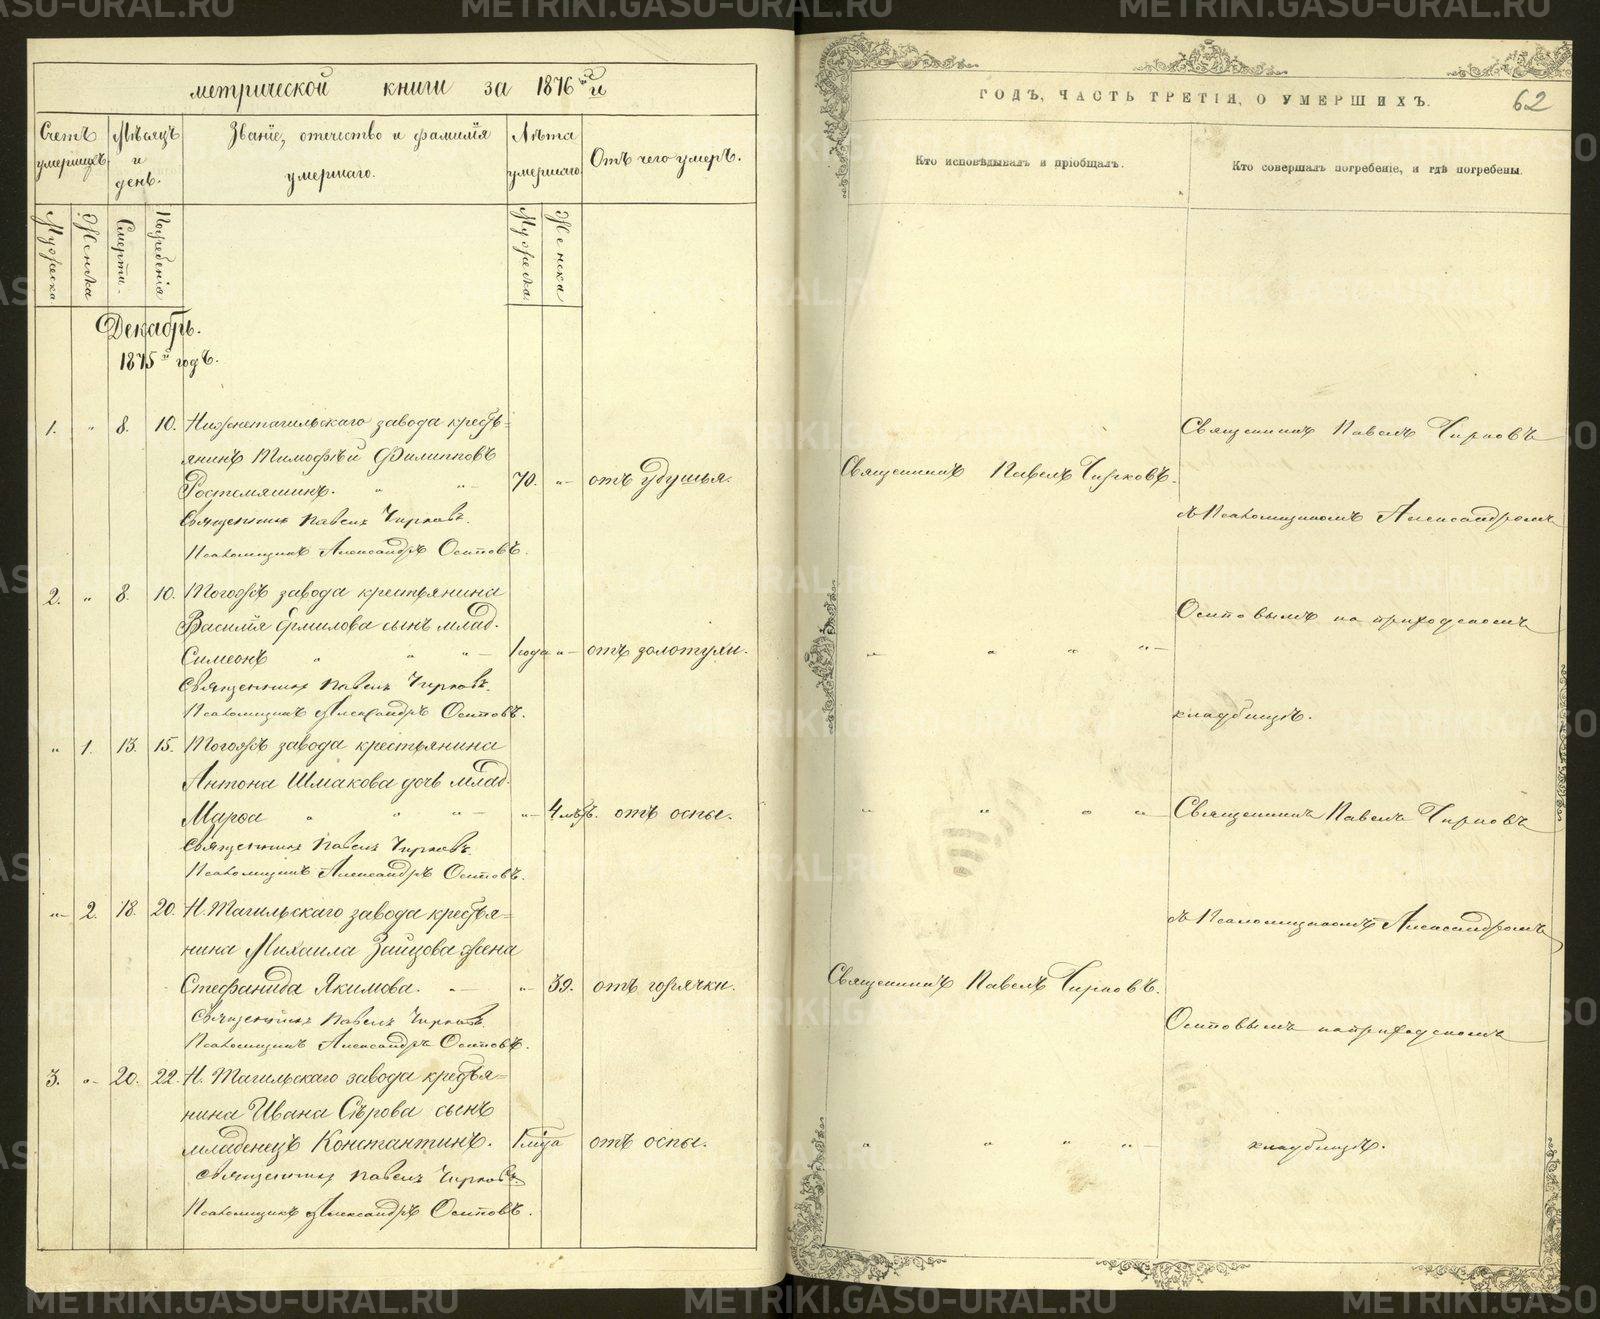 метрической книги за 1876ый
Счетъ умершихъ.
Мѣсяцъ и день.
Званіе, отечество и фамилія умершаго.
Лѣта умершаго.
Отъ чего умеръ.
Мужеска
Женска
Смерти.
Погребенія
Мужеска.
Женска
Декабрь.
1875й годъ.
1. " 8. 10. Нижнетагильскаго завода кресть=
янинъ Тимофѣй Филипповъ
70. " отъ удушья.
Священникъ Павелъ Чирковъ.
Псаломщикъ Александръ Осиповъ.
2. " 8. 10. Тогожъ завода крестьянина
Василія Ермилова сынъ млад.
Симеонъ " " " 1 года " отъ золотухи.
Священникъ Павелъ Чирковъ.
Псаломщикъ Александръ Осиповъ.
" 1. 13. 15. Тогожъ завода крестьянина
Антона Шмакова дочь млад.
Марѳа " " " " 4 мѣс. отъ оспы.
Священникъ Павелъ Чирковъ.
Псаломщикъ Александръ Осиповъ.
" 2. 18. 20. Н. Тагильскаго завода крестья=
нина Михаила Зайцова жена
Стефанида Якимова. " " 39. отъ горячки.
Священникъ Павелъ Чирковъ
Псаломщикъ Александръ Осиповъ.
3. " 20. 22. Н. Тагильскаго завода крестья=
нина Ивана Сѣрова сынъ
младенецъ Константинъ. отъ оспы.
Священникъ Павелъ Чирковъ
Псаломщикъ Александръ Осиповъ.
ГОДЪ, ЧАСТЬ ТРЕТІЯ, О УМЕРШИХЪ.
62
Кто исповѣдывалъ и пріобщалъ.
Кто совершалъ погребеніе, и гдѣ погребены.
Священникъ Павелъ Чирковъ
Священникъ Павелъ Чирковъ.
съ Псаломщикомъ Александромъ
Осиповымъ на приходскомъ
" " " "
кладбищѣ.
" " " " Священникъ Павелъ Чирковъ
съ Псаломщикомъ Александромъ
Священникъ Павелъ Чирковъ.
Осиповымъ на приходскомъ
" " " " кладбищѣ.
METRIKI.GASU-URAL.RU